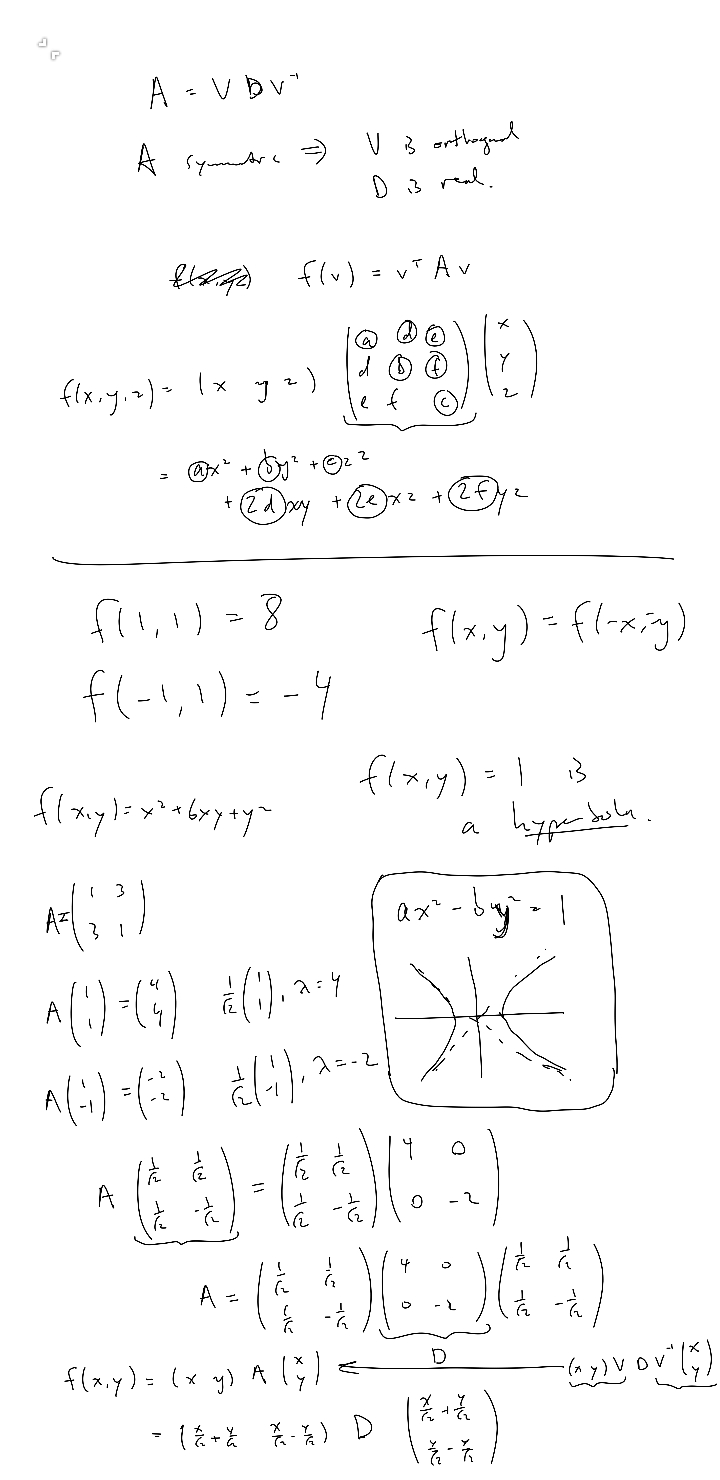 A = V D V⁻¹
A symmetric ⇒ V is orthogonal
D is real.
f(v) = vᵀ A v
f(x,y,z) = (x y z) (a d e; d b f; e f c) (x; y; z)
= ax² + by² + cz²
+ 2dxy + 2exz + 2fyz
f(1,1) = 8
f(x,y) = f(-x,-y)
f(-1,1) = -4
f(x,y) = 1 is
a hyperbola.
f(x,y) = x² + 6xy + y²
A = (1 3; 3 1)
ax² - by² = 1
A (1; 1) = (4; 4) 1/√2 (1; 1), λ = 4
A (1; -1) = (-2; -2) 1/√2 (1; -1), λ = -2
A (1/√2 1/√2; 1/√2 -1/√2) = (1/√2 1/√2; 1/√2 -1/√2) (4 0; 0 -2)
A = (1/√2 1/√2; 1/√2 -1/√2) (4 0; 0 -2) (1/√2 1/√2; 1/√2 -1/√2)
D
f(x,y) = (x y) A (x; y) ← (x y) V D V⁻¹ (x; y)
= (x/√2 + y/√2 x/√2 - y/√2) D (x/√2 + y/√2; x/√2 - y/√2)